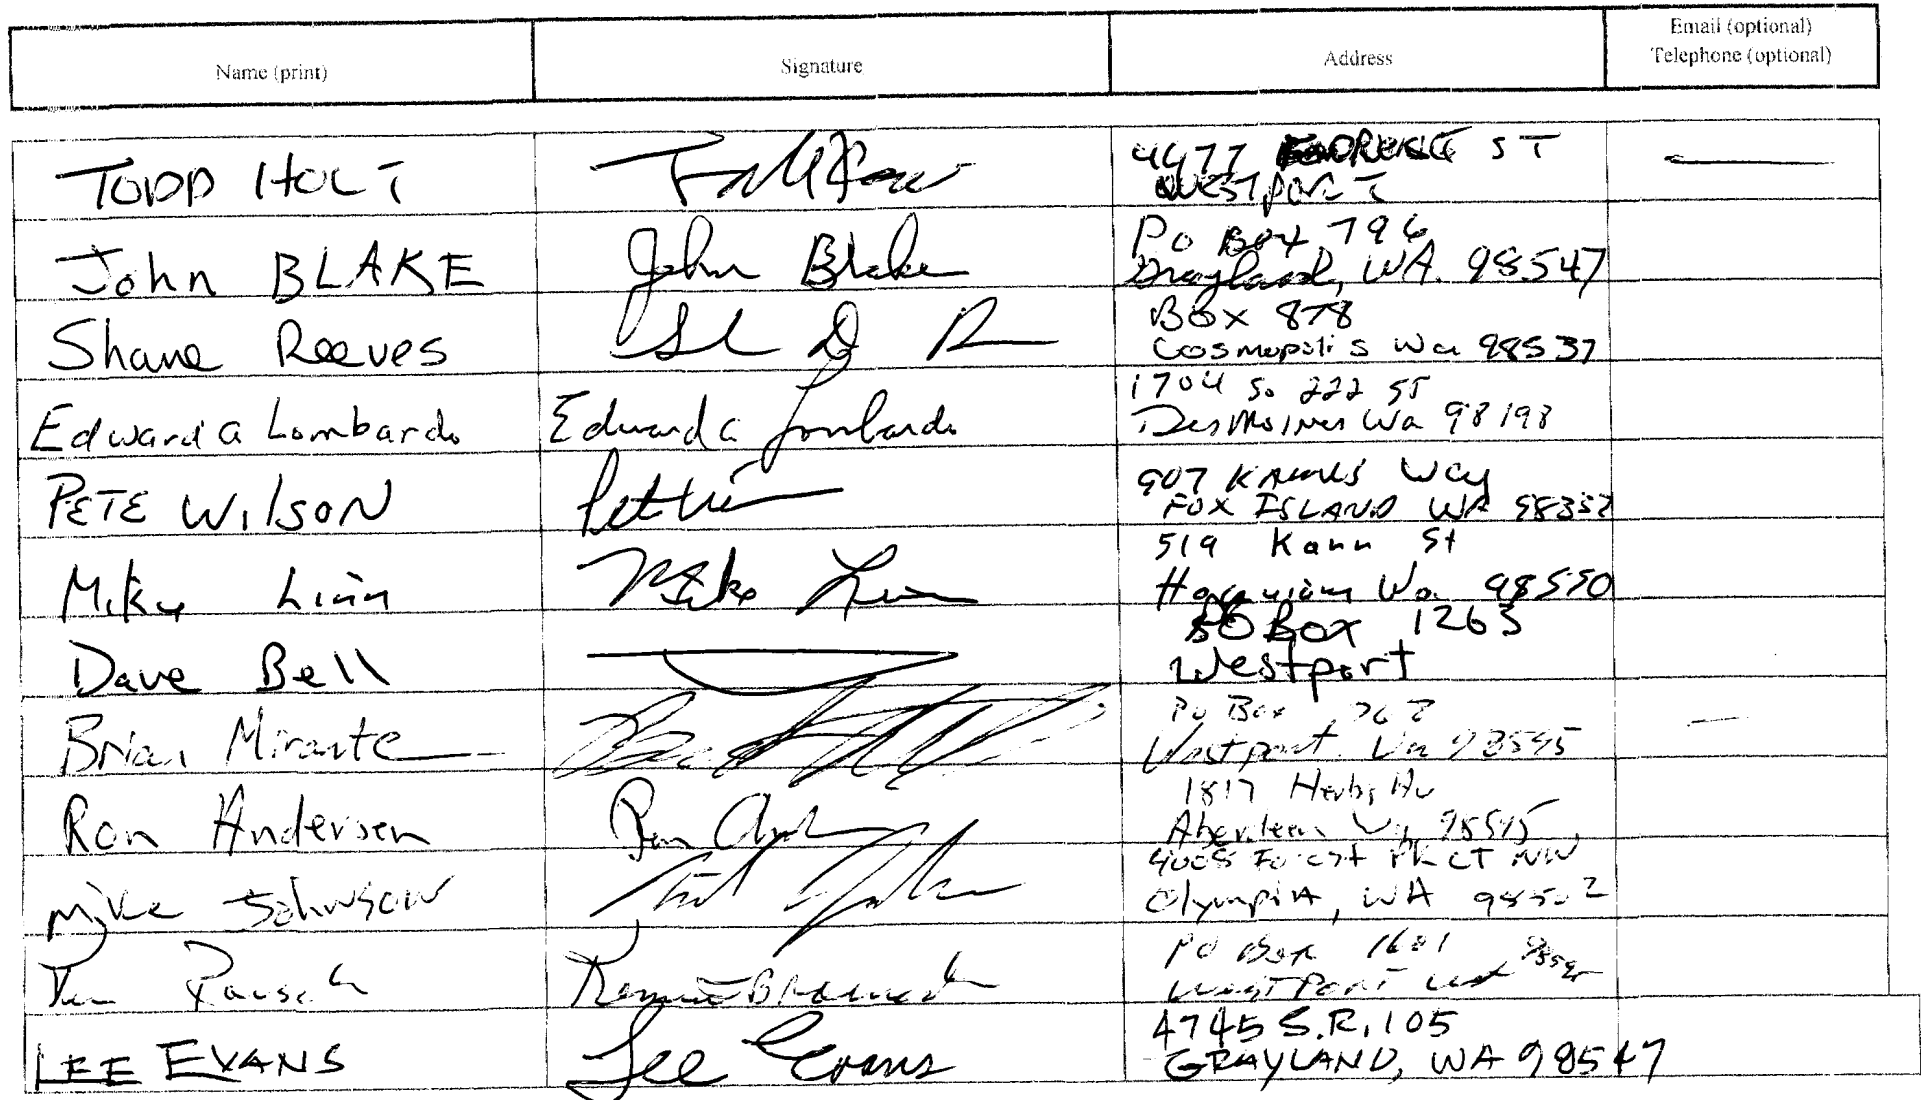 Name (print)
Signature
Address
Email (optional)
Telephone (optional)
TODD HOLT
4477 ST
WESTPORT
John BLAKE
John Blake
Po Box 796
Grayland, WA. 98547
Shane Reeves
Box 878
Cosmopolis Wa 98537
Edward A Lombardo
Edward A Lombardo
1704 So 222 ST
Des Moines Wa 98198
PETE WILSON
907 Way
FOX ISLAND WA
Mike Linn
Mike Linn
519 Karr St
Hoquiam Wa. 98550
Dave Bell
PO Box 1263
Westport
Brian Mirante
Po Box
Westport Wa 98595
Ron Andersen
Ron
1817 Av
Aberdeen Wa
Mike Johnson
Forest PK CT NW
Olympia, WA 98502
Rausch
PO Box 1601
WESTPORT
LEE EVANS
Lee Evans
4745 S.R. 105
GRAYLAND, WA 98547